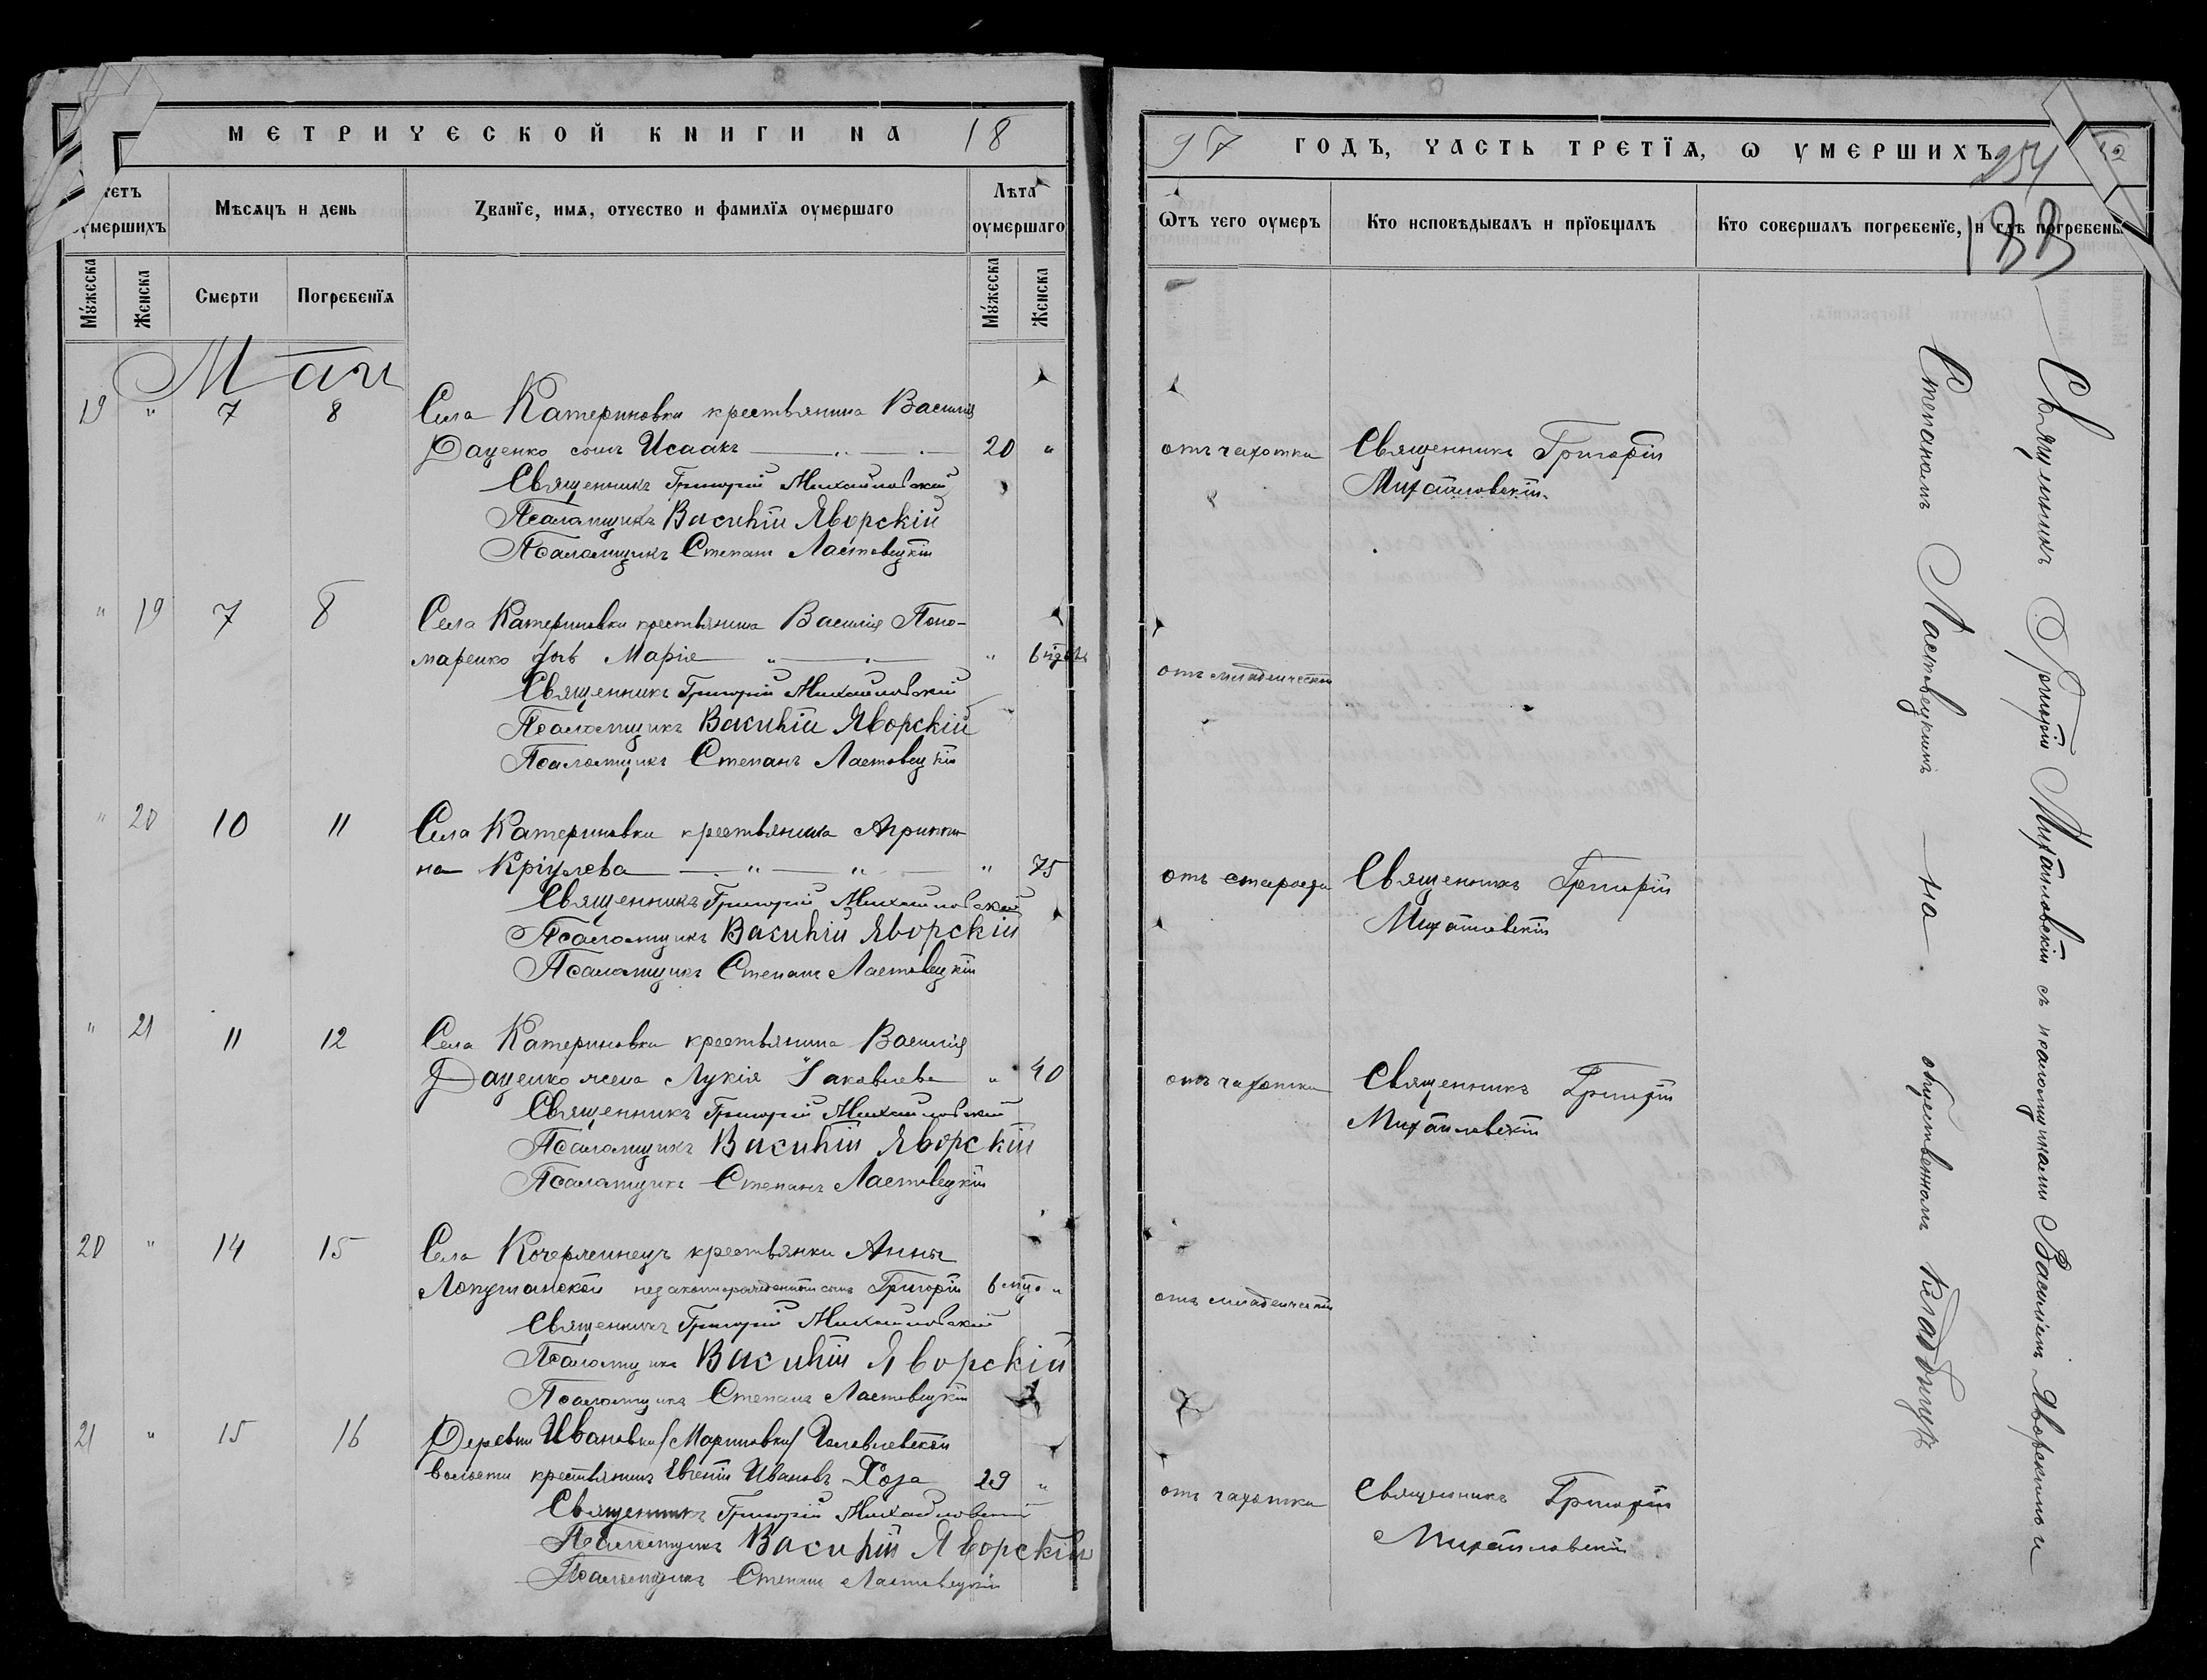 МЕТРИЧЕСКОЙ КНИГИ НА 18
четъ умершихъ
Мѣсяцъ и день
Званїе, имя, отчество и фамилїя оумершаго
Лѣта оумершаго
Мужеска
Женска
Смерти
Погребенїя
Мужеска
Женска
Май
19 " 7 8 Села Катериновки крестьянина Василія
Даценко сынъ Исаакъ 20 "
Священникъ Григорій Михайловскій
Псаломщикъ Василій Яворскій
Псаломщикъ Степанъ Ластовецкій
" 19 7 8 Села Катериновки крестьянина Василія Поно-
маренко дочь Марія "
Священникъ Григорій Михайловскій
Псаломщикъ Василій Яворскій
Псаломщикъ Степанъ Ластовецкій
" 20 10 11 Села Катериновки крестьянка Агриппи-
на " 75
Священникъ Григорій Михайловскій
Псаломщикъ Василій Яворскій
Псаломщикъ Степанъ Ластовецкій
" 21 11 12 Села Катериновки крестьянина Василія
Даценко жена Лукія Іаковлева " 40
Священникъ Григорій Михайловскій
Псаломщикъ Василій Яворскій
Псаломщикъ Степанъ Ластовецкій
20 " 14 15 Села крестьянки Анны
Лопушанской незаконнорожденный сынъ Григорій 6 мѣс. "
Священникъ Григорій Михайловскій
Псаломщикъ Василій Яворскій
Псаломщикъ Степанъ Ластовецкій
21 " 15 16 Деревни Ивановки /Мариновки/
волости крестьянинъ Евгеній Ивановъ Хоза 29 "
Священникъ Григорій Михайловскій
Псаломщикъ Василій Яворскій
Псаломщикъ Степанъ Ластовецкій
97 ГОДЪ, ЧАСТЬ ТРЕТЇЯ, Ѡ УМЕРШИХЪ
254
Ѿтъ чего оумеръ
Кто исповѣдывалъ и прїобщалъ
Кто совершалъ погребенїе, и гдѣ погребены
отъ чахотки Священникъ Григорій
Михайловскій.
отъ младенческой
отъ старости Священникъ Григорій
Михайловскій
отъ чахотки Священникъ Григорій
Михайловскій
отъ младенческой
отъ чахотки Священникъ Григорій
Михайловскій
Священникъ Григорій Михайловскій съ псаломщиками Василіемъ Яворскимъ и
Степаномъ Ластовецкимъ на общественномъ кладбищѣ